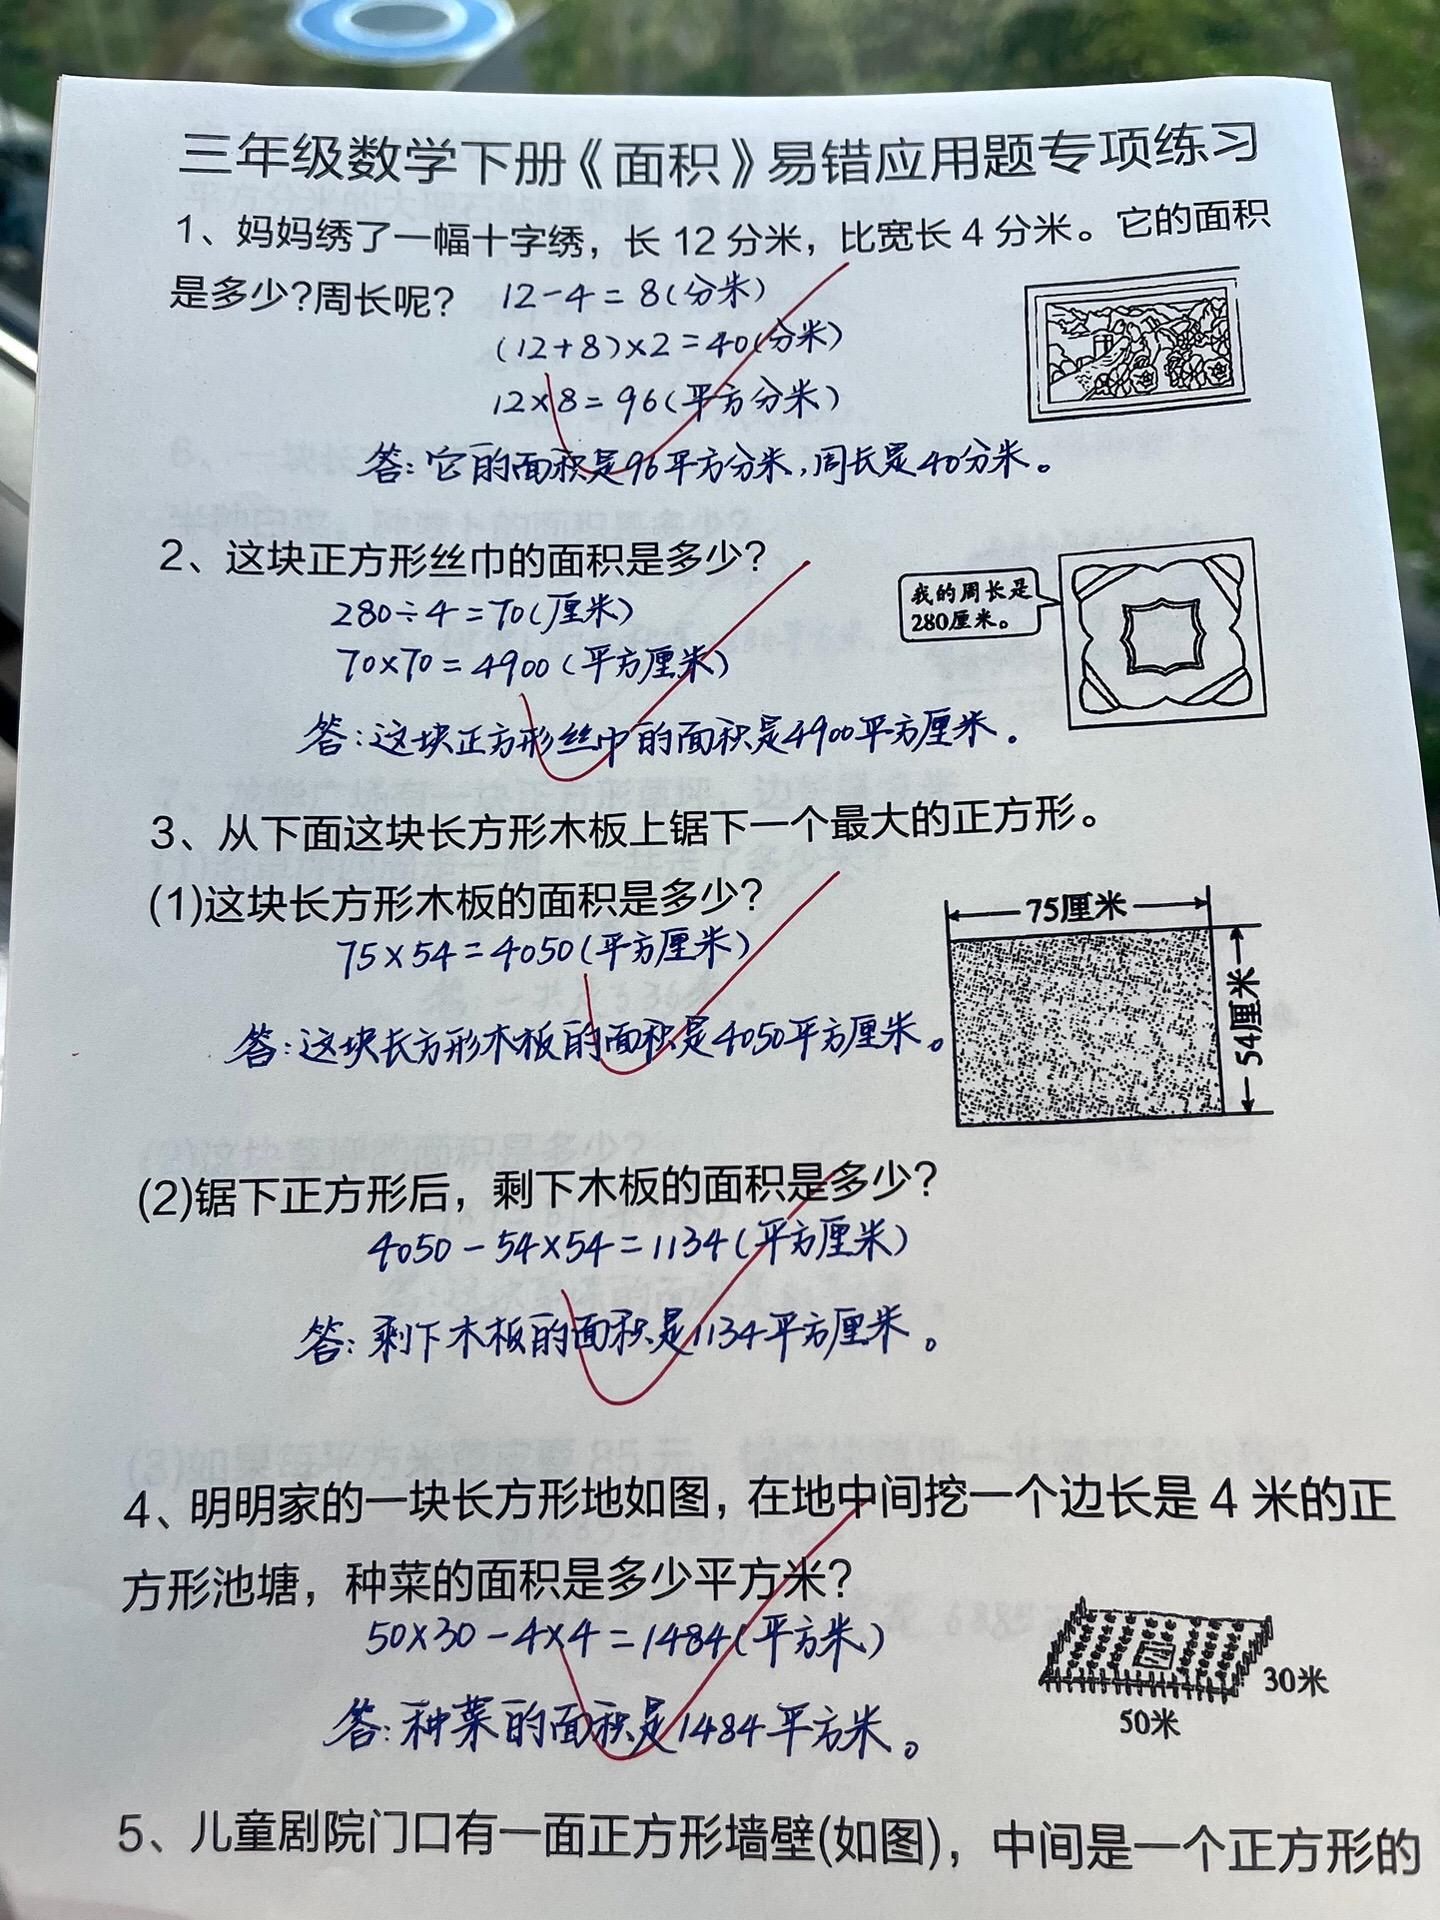 三年级数学下册《面积》易错应用题专项练习
1、妈妈绣了一幅十字绣，长 12 分米，比宽长 4 分米。它的面积
是多少?周长呢?
12-4=8(分米)
(12+8)×2=40(分米)
12×8=96(平方分米)
答:它的面积是96平方分米,周长是40分米。
2、这块正方形丝巾的面积是多少?
280÷4=70(厘米)
70×70=4900(平方厘米)
我的周长是
280厘米。
答:这块正方形丝巾的面积是4900平方厘米。
3、从下面这块长方形木板上锯下一个最大的正方形。
(1)这块长方形木板的面积是多少?
75×54=4050(平方厘米)
答:这块长方形木板的面积是4050平方厘米。
75厘米
54厘米
(2)锯下正方形后，剩下木板的面积是多少?
4050-54×54=1134(平方厘米)
答:剩下木板的面积是1134平方厘米。
4、明明家的一块长方形地如图，在地中间挖一个边长是 4 米的正
方形池塘，种菜的面积是多少平方米?
50×30-4×4=1484(平方米)
答:种菜的面积是1484平方米。
30米
50米
5、儿童剧院门口有一面正方形墙壁(如图)，中间是一个正方形的